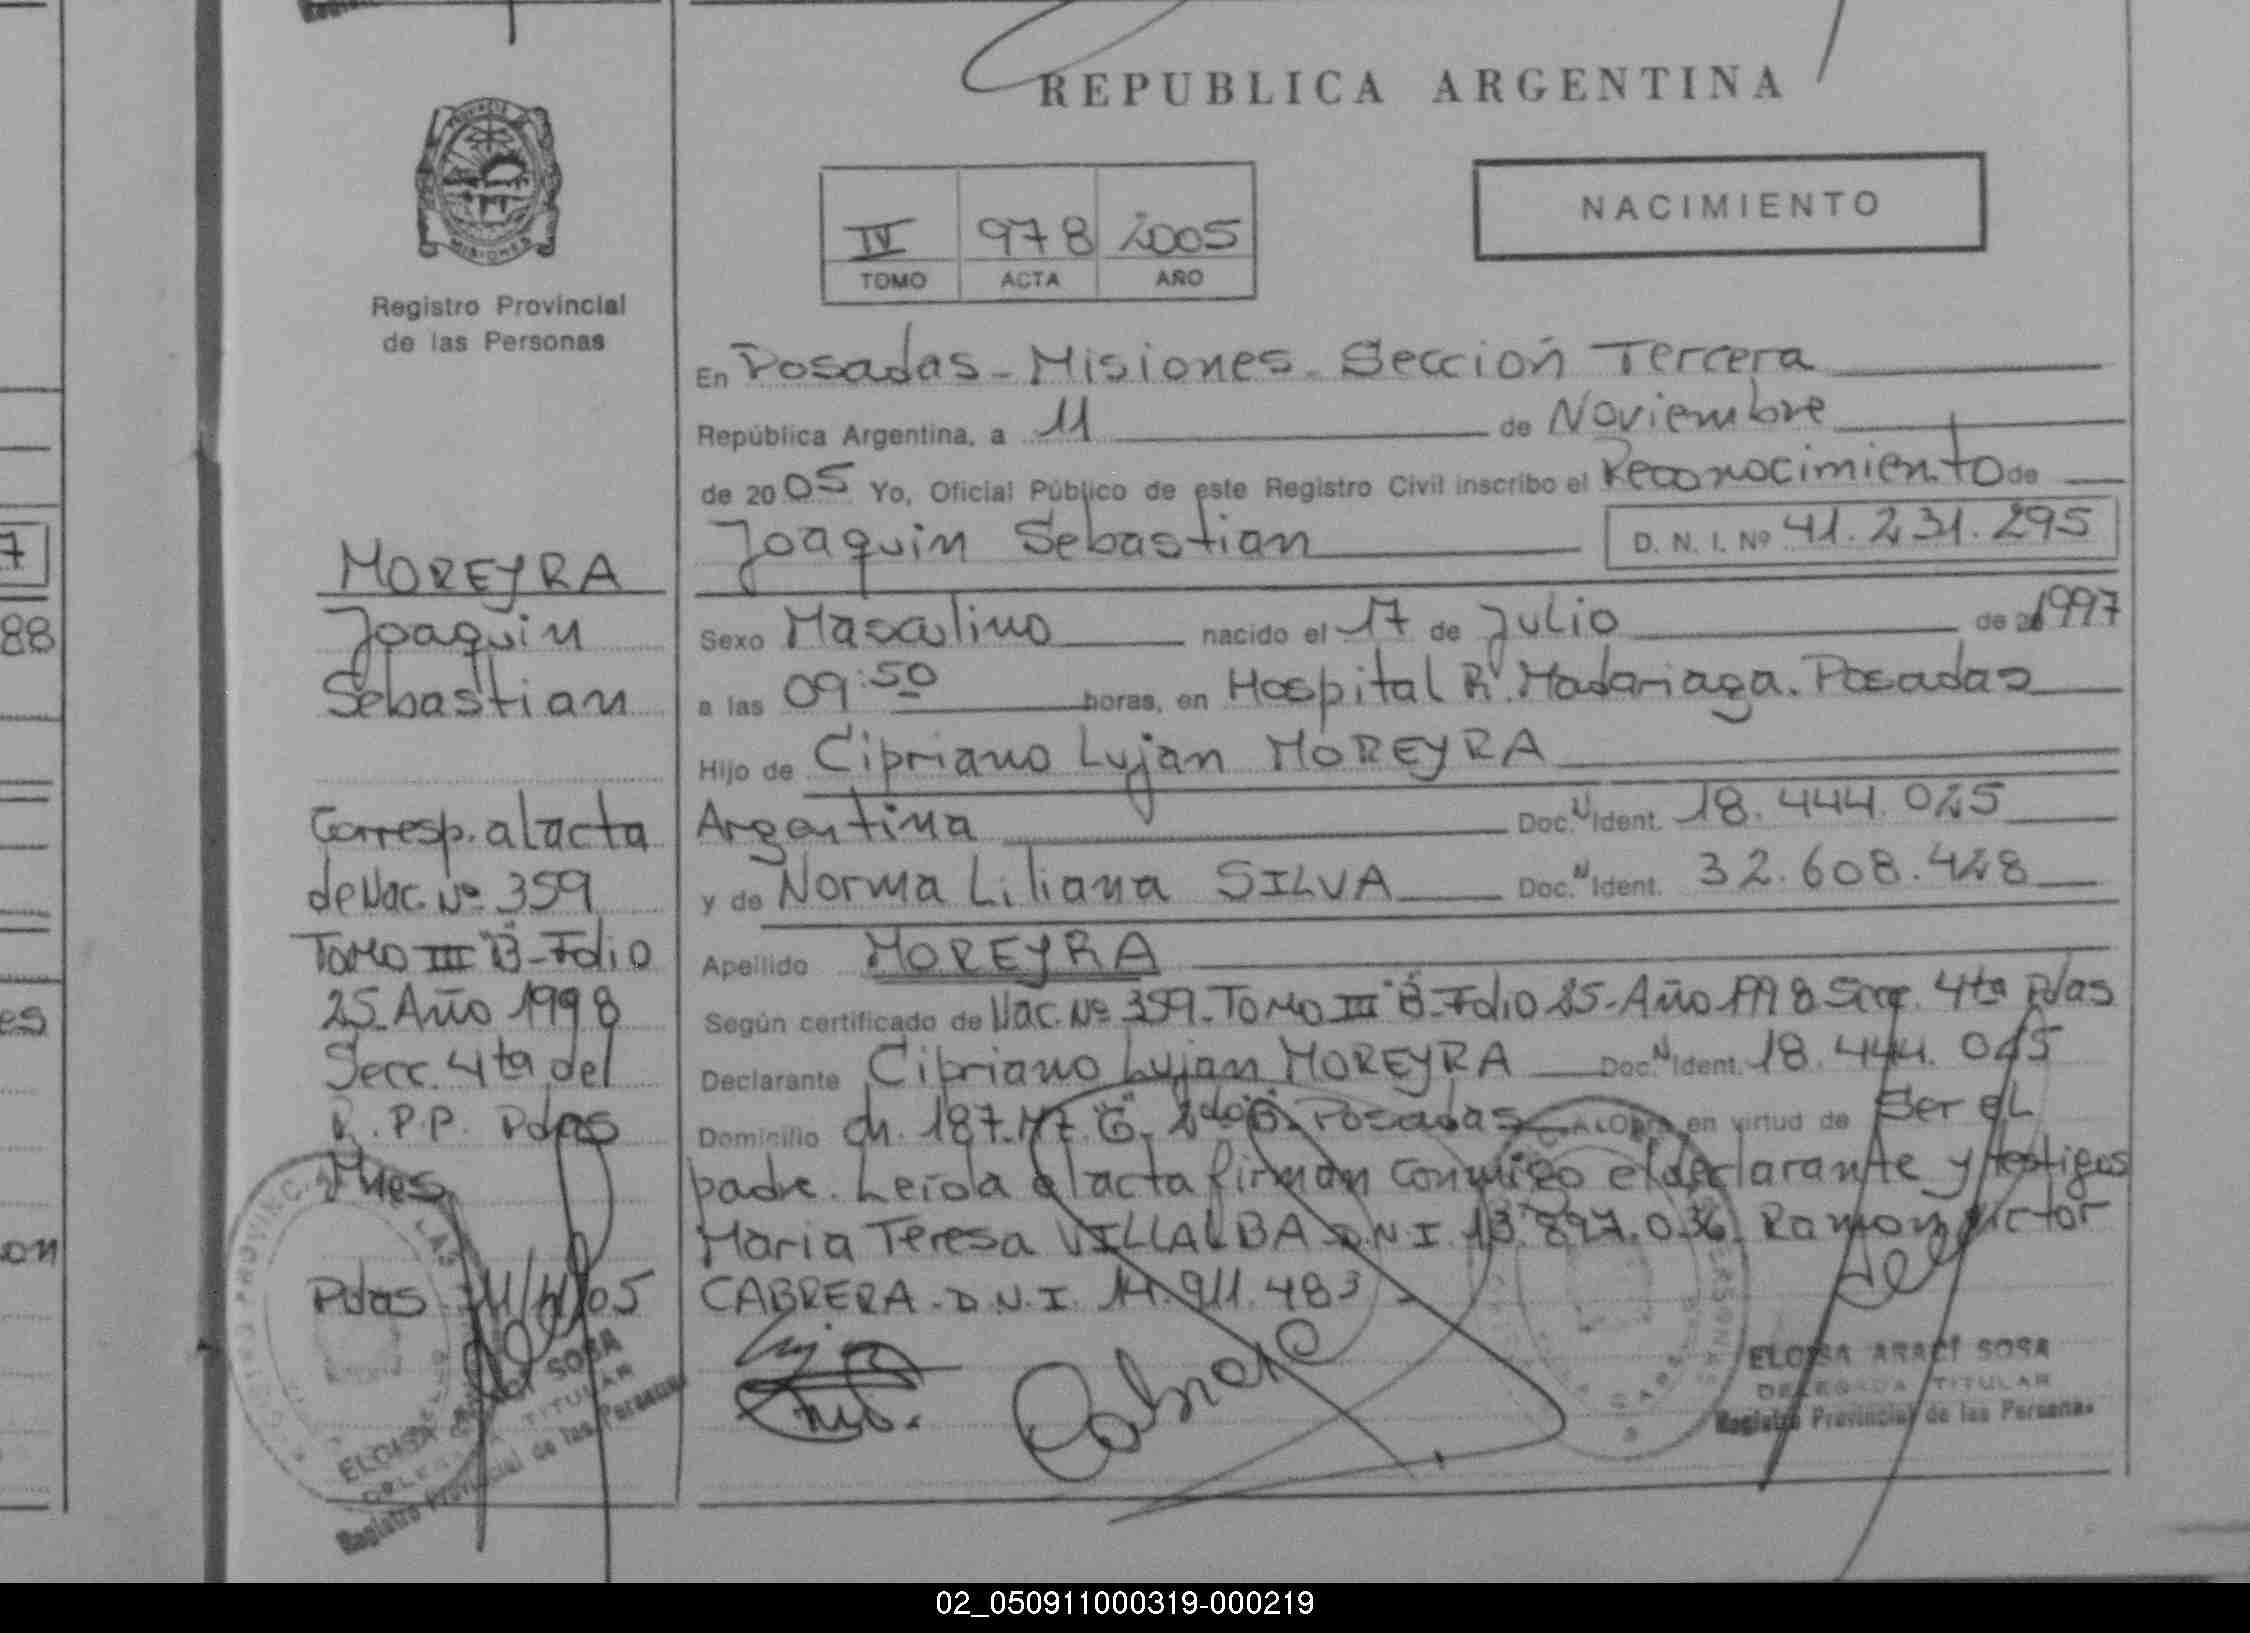 REPUBLICA ARGENTINA
NACIMIENTO
IV 978 2005
TOMO ACTA AÑO
PROVINCIA DE
MISIONES
Registro Provincial
de las Personas
MOREYRA
Joaquin
Sebastian
Corresp. al acta
de Nac. Nº 359
Tomo III "B"-Folio
25-Año 1998
Secc. 4ta del
R.P.P. Pdas
Mnes.
Pdas 11/11/05
En Posadas - Misiones - Sección Tercera
República Argentina, a 11 de Noviembre
de 2005 Yo, Oficial Público de este Registro Civil inscribo el Reconocimiento de
Joaquin Sebastian D. N. I. Nº 41.231.295
Sexo Masculino nacido el 17 de Julio de 1997
a las 09:50 horas, en Hospital R. Madariaga. Posadas
Hijo de Cipriano Lujan MOREYRA
Argentina Doc. N Ident. 18.444.025
y de Norma Liliana SILVA Doc. N Ident. 32.608.428
Apellido MOREYRA
Según certificado de Nac. Nº 359-Tomo III "B"-Folio 25-Año 1998 Secc. 4ta Pdas
Declarante Cipriano Lujan MOREYRA Doc. N Ident. 18.444.025
Domicilio ch. 187. Mz "G". Posadas en virtud de Ser el
padre. Leida el acta firman conmigo el declarante y testigos
Maria Teresa VILLALBA D.N.I. 13.897.036. Ramon Victor
CABRERA - D.N.I. 14.911.483
ELOISA ARACI SOSA
DELEGADA TITULAR
Registro Provincial de las Personas
ELOISA ARACI SOSA
DELEGADA TITULAR
Registro Provincial de las Personas
7
88
es
on
02_050911000319-000219